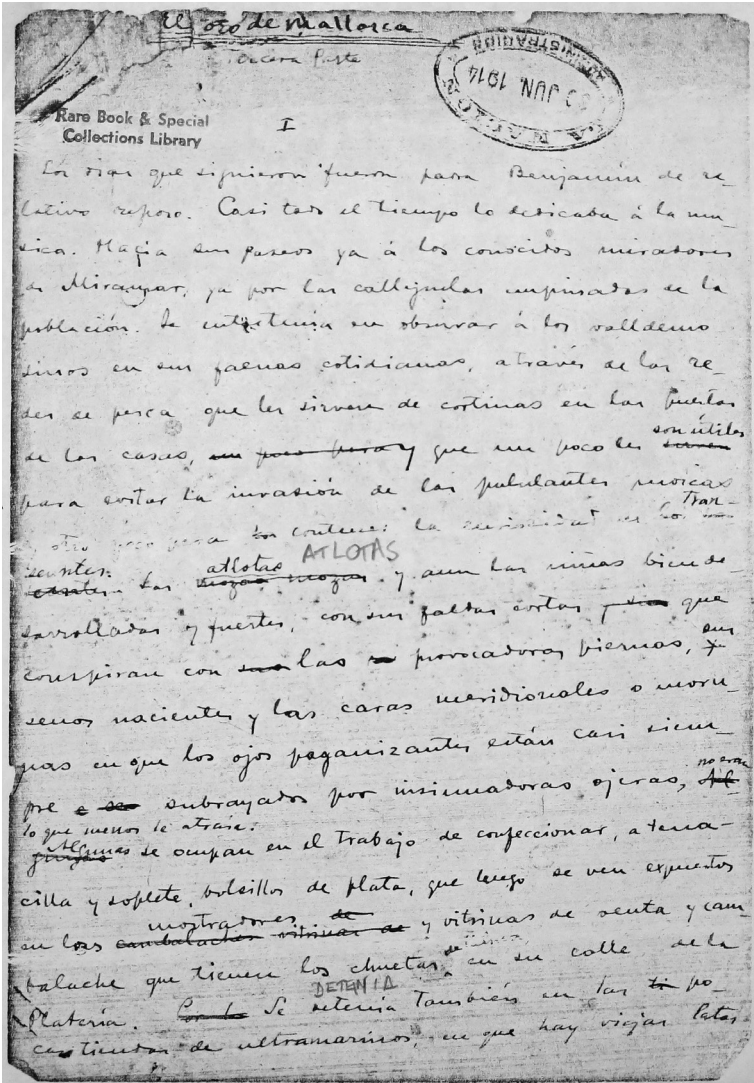 El oro de Mallorca
Tercera Parte
LA NACION
JUN. 1914
ADMINISTRACION
Rare Book & Special
Collections Library
I
Los días que siguieron fueron para Benjamín de re-
lativo reposo. Casi todo el tiempo lo dedicaba á la mú-
sica. Hacía sus paseos ya á los conocidos miradores
de Miramar, ya por las callejuelas empinadas de la
población. Se entretenía en observar á los valldemo-
sinos en sus faenas cotidianas, a través de las re-
des de pesca que les sirven de cortinas en las puertas
son útiles
de las casas, un poco para y que un poco les sirven
para evitar la invasión de las pululantes moscas
tran-
y otro poco para contener la curiosidad de los
seuntes. atlotas ATLOTAS
Las mozas mozas y aun las niñas bien de-
sarrolladas y fuertes, con sus faldas cortas y que
conspiran con sus las provocadoras piernas, sus
senos nacientes y las caras meridionales o more-
nas en que los ojos paganizantes están casi siem-
no eran
pre subrayados por insinuadoras ojeras,
lo que menos le atraía.
Algunas se ocupan en el trabajo de confeccionar, a tena-
cilla y soplete, bolsillos de plata, que luego se ven expuestos
mostradores de
en los cambalaches vitrinas de y vitrinas de venta y cam-
balache que tienen los chuetas en su calle de la
DETENIA
Platería. Por la Se detenía también en las ti po-
cas tiendas de ultramarinos, en que hay viejas latas